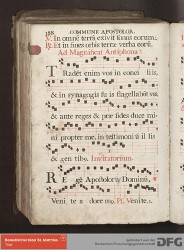 188 COMMUNE APOSTOLOR.
V. In omnē terrā exivit sonus eorum.
R. Et in fines orbis terræ verba eorū.
Ad Magnificat Antiphona:
TRadēt enim vos in conci liis,
& in synagogis su is flagellabūt vos,
& ante reges & præ sides duce mi-
ni propter me, in testimoni ū il lis
& gen tibus. Invitatorium.
REgē Apostolorū Dominū,
Veni te a dore mus. Ps. Venite.
DFG